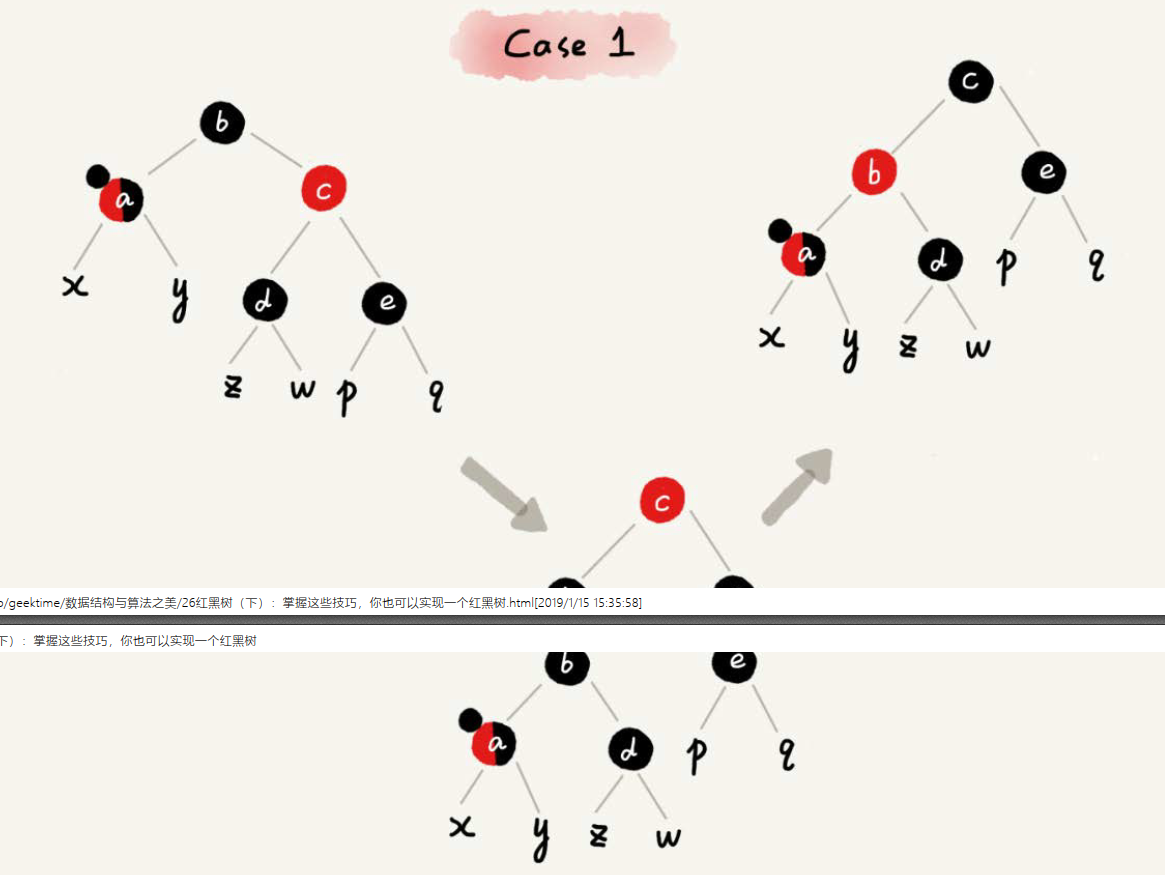 Case 1
b
c
a
c
b
e
x
y
d
e
a
d
p
q
z
w
p
q
x
y
z
w
c
o/geektime/数据结构与算法之美/26红黑树（下）：掌握这些技巧，你也可以实现一个红黑树.html[2019/1/15 15:35:58]
下）：掌握这些技巧，你也可以实现一个红黑树
b
e
a
d
p
q
x
y
z
w